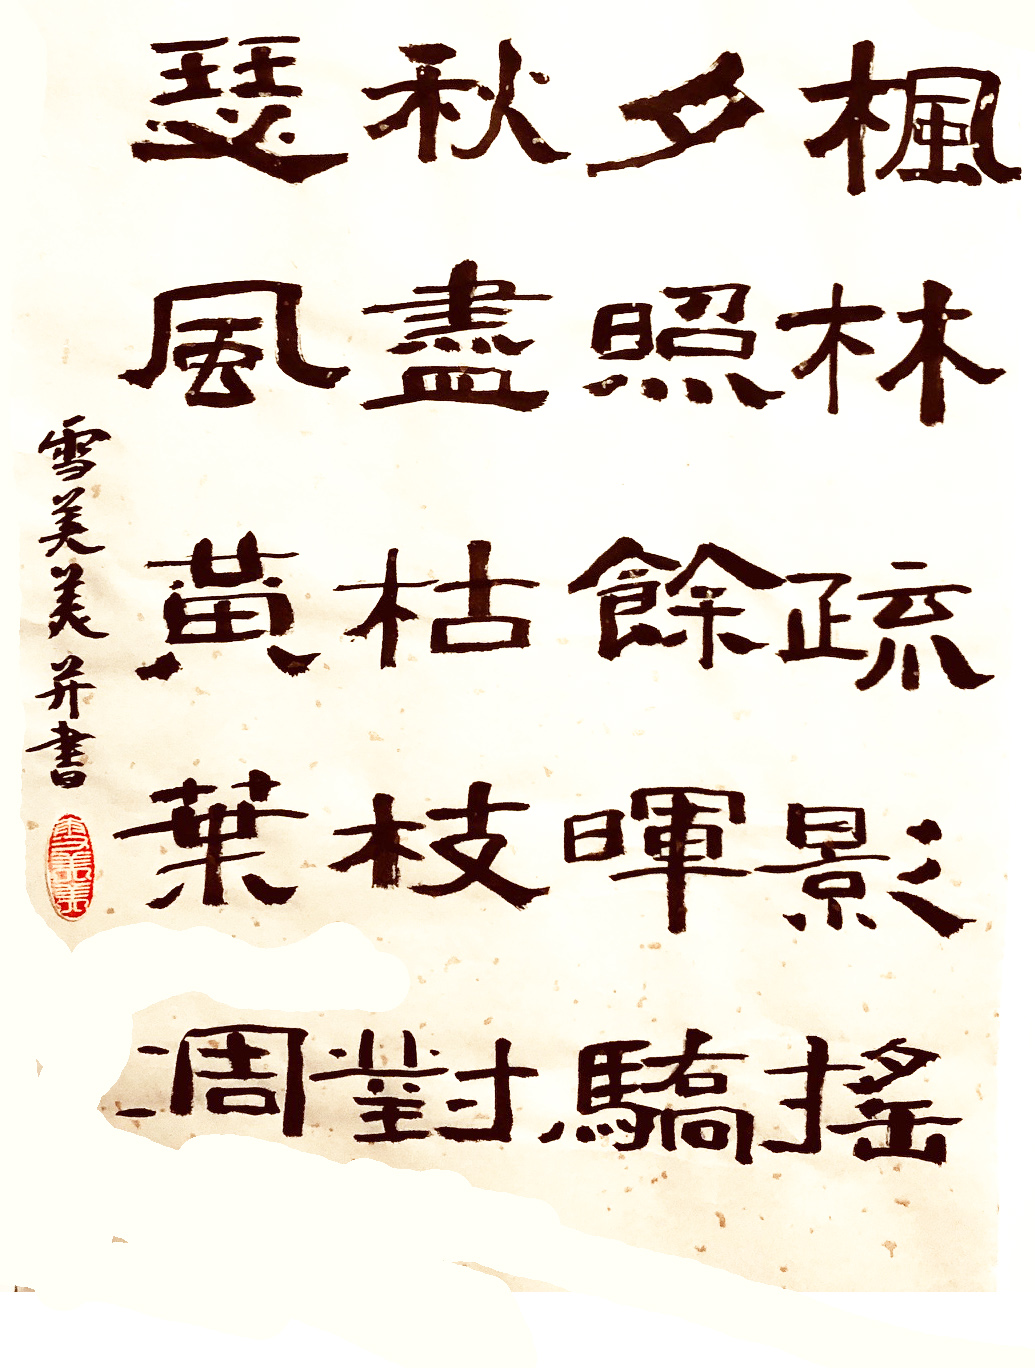 楓林疏影搖
夕照餘暉驕
秋盡枯枝對
瑟風黃葉凋
雪美美并書
雪美美